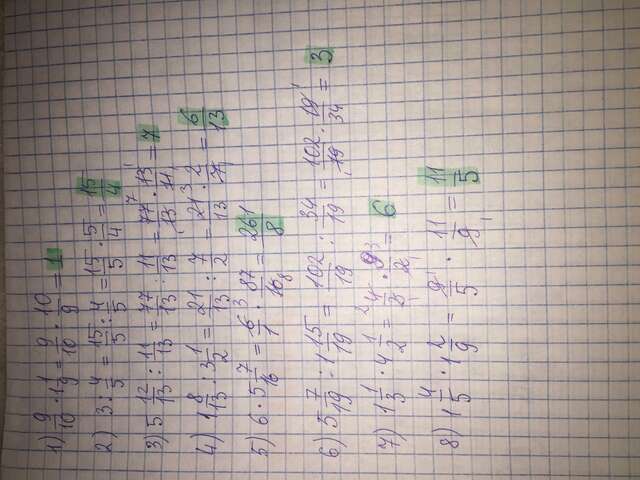 1) 9/10 · 1 1/9 = 9/10 · 10/9 = 1
2) 3 : 4/5 = 15/5 : 4/5 = 15/5 · 5/4 = 15/4
3) 5 12/13 : 11/13 = 77/13 : 11/13 = 77/13 · 13/11 = 7
4) 1 8/13 : 3 1/2 = 21/13 : 7/2 = 21/13 · 2/7 = 6/13
5) 6 · 5 7/16 = 6/1 · 87/16 = 261/8
6) 5 7/19 : 1 15/19 = 102/19 : 34/19 = 102/19 · 19/34 = 3
7) 1 1/3 · 4 1/2 = 4/3 · 9/2 = 6
8) 1 4/5 · 1 2/9 = 9/5 · 11/9 = 11/5